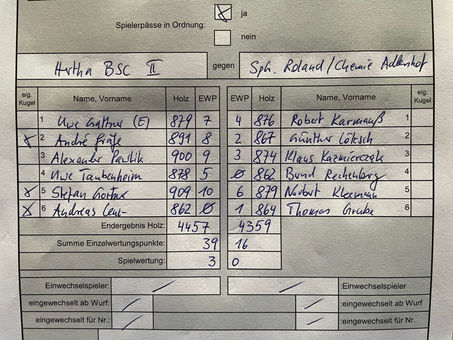 Spielerpässe in Ordnung: ja
nein
Hertha BSC II gegen Sph. Roland/Chemie Adlershof
eig. Kugel Name, Vorname Holz EWP EWP Holz Name, Vorname eig. Kugel
1 Uwe (E) 879 7 4 876 Robert 1
2 André 891 8 2 867 Günther 2
3 Alexander 900 9 3 874 Klaus Kazmierczak 3
4 Uwe Taubenheim 878 5 0 862 Bernd Rechenberg 4
5 Stefan 909 10 6 879 Norbert Kleemann 5
6 Andreas 862 0 1 864 Thomas Grube 6
Endergebnis Holz: 4457 4359
Summe Einzelwertungspunkte: 39 16
Spielwertung: 3 0
Einwechselspieler: :Einwechselspieler
eingewechselt ab Wurf: :eingewechselt ab Wurf
eingewechselt für Nr.: :eingewechselt für Nr.